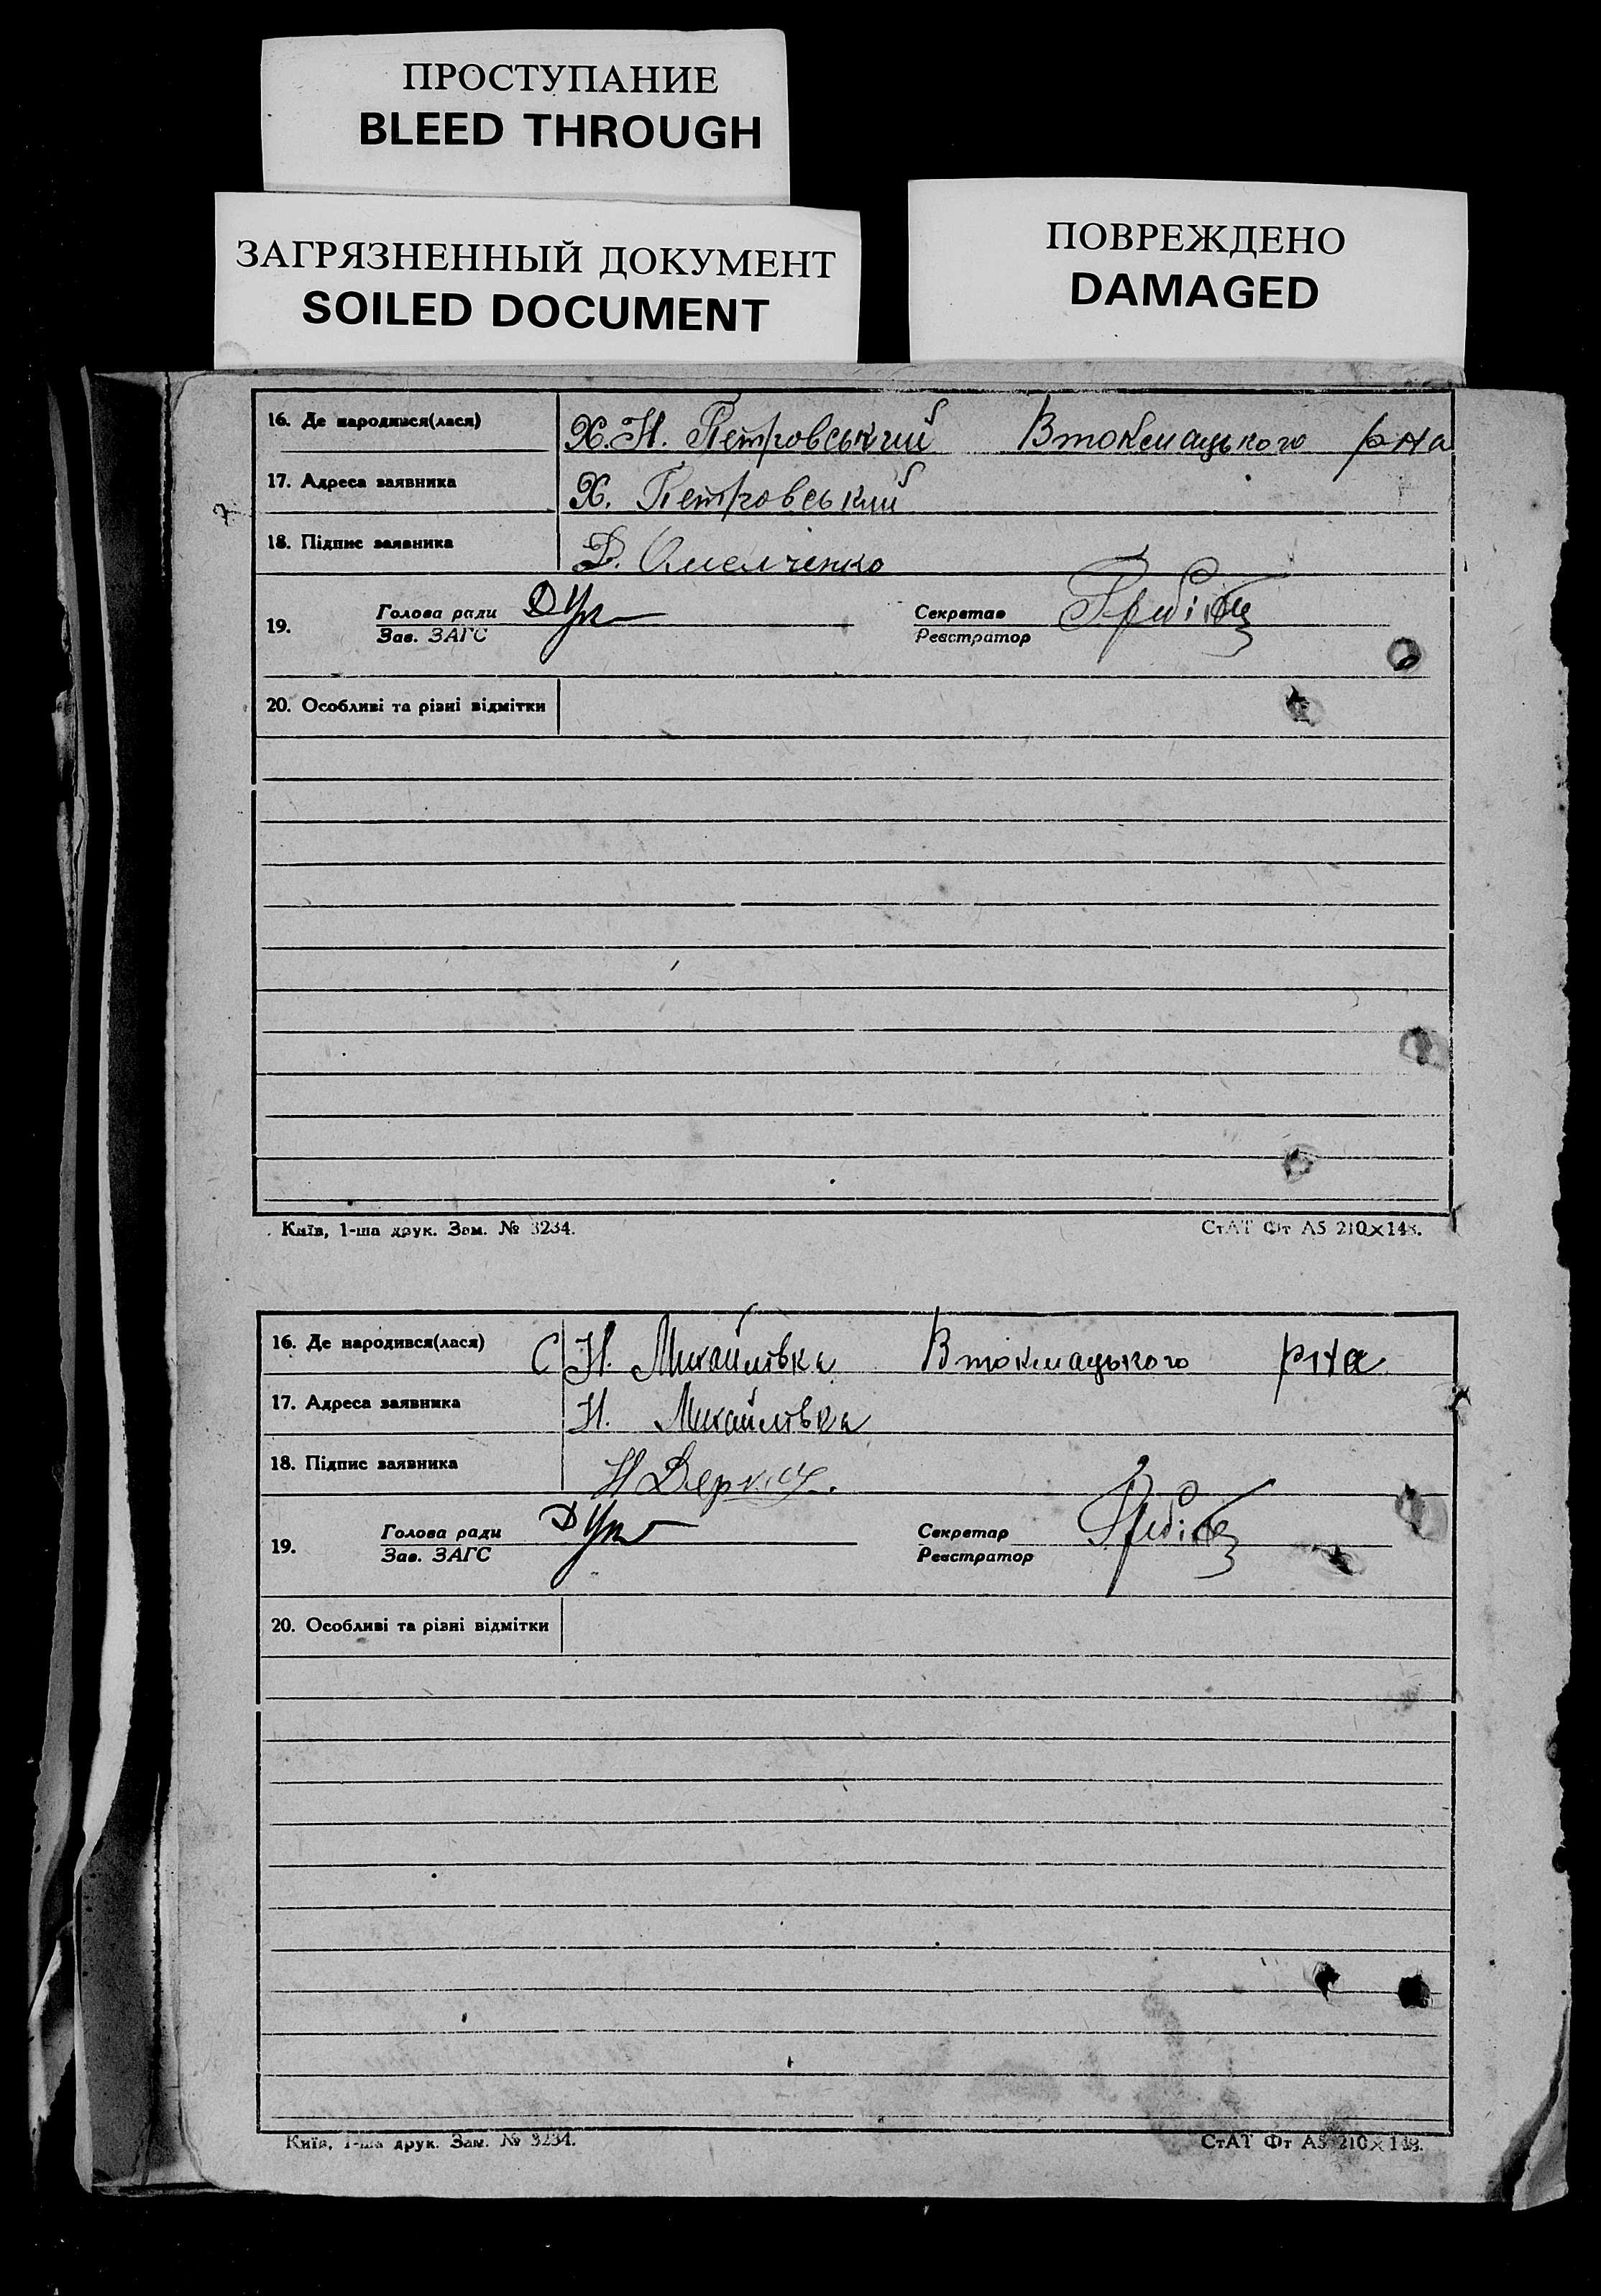 ПРОСТУПАНИЕ
BLEED THROUGH
ЗАГРЯЗНЕННЫЙ ДОКУМЕНТ
SOILED DOCUMENT
ПОВРЕЖДЕНО
DAMAGED
16. Де народився(лася) Х. Н. Петровський Втокмацького р-на
17. Адреса заявника Х. Петровський
18. Підпис заявника Омелченко
19. Голова ради Секретар
Зав. ЗАГС Реєстратор
20. Особливі та різні відмітки
Київ, 1-ша друк. Зам. № 3234. СтАТ Фт А5 210×148.
16. Де народився(лася) С Н. Михайлівка Втокмацького р-на
17. Адреса заявника Н. Михайлівка
18. Підпис заявника
19. Голова ради Секретар
Зав. ЗАГС Реєстратор
20. Особливі та різні відмітки
Київ, 1-ша друк. Зам. № 3234. СтАТ Фт А5 210×148.